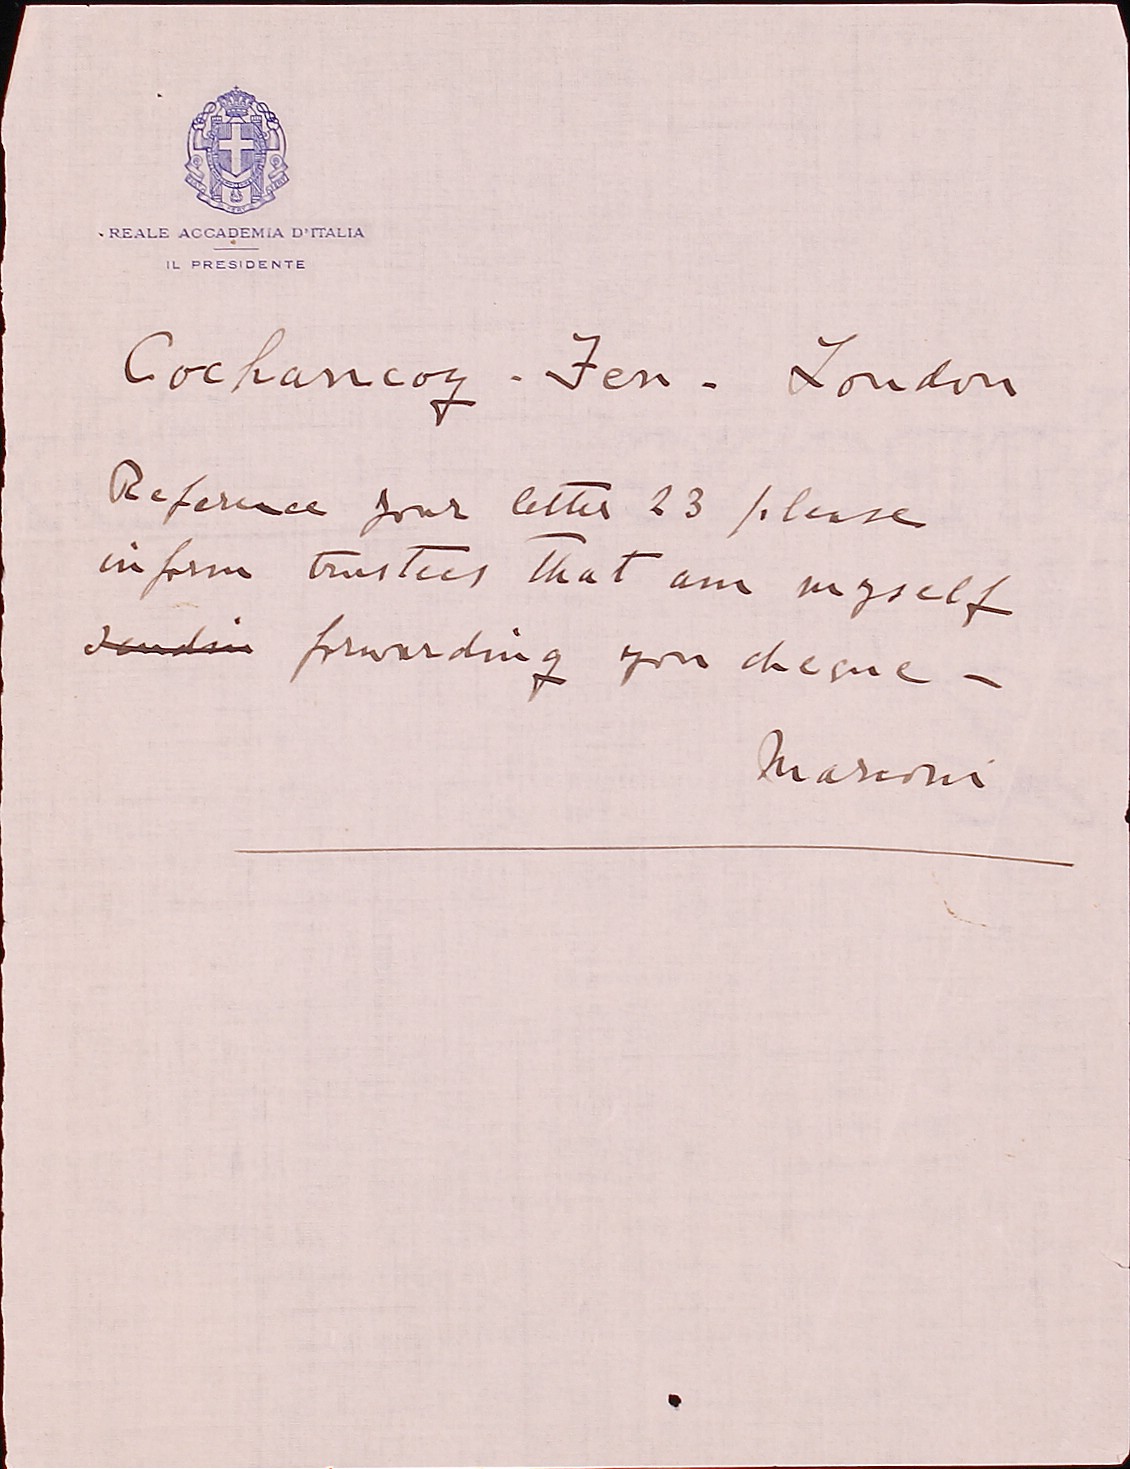 REALE ACCADEMIA D'ITALIA
IL PRESIDENTE
Cochancoy - Fen - London
Reference your letter 23 please
inform trustees that am myself
sendin forwarding you cheque -
Marconi